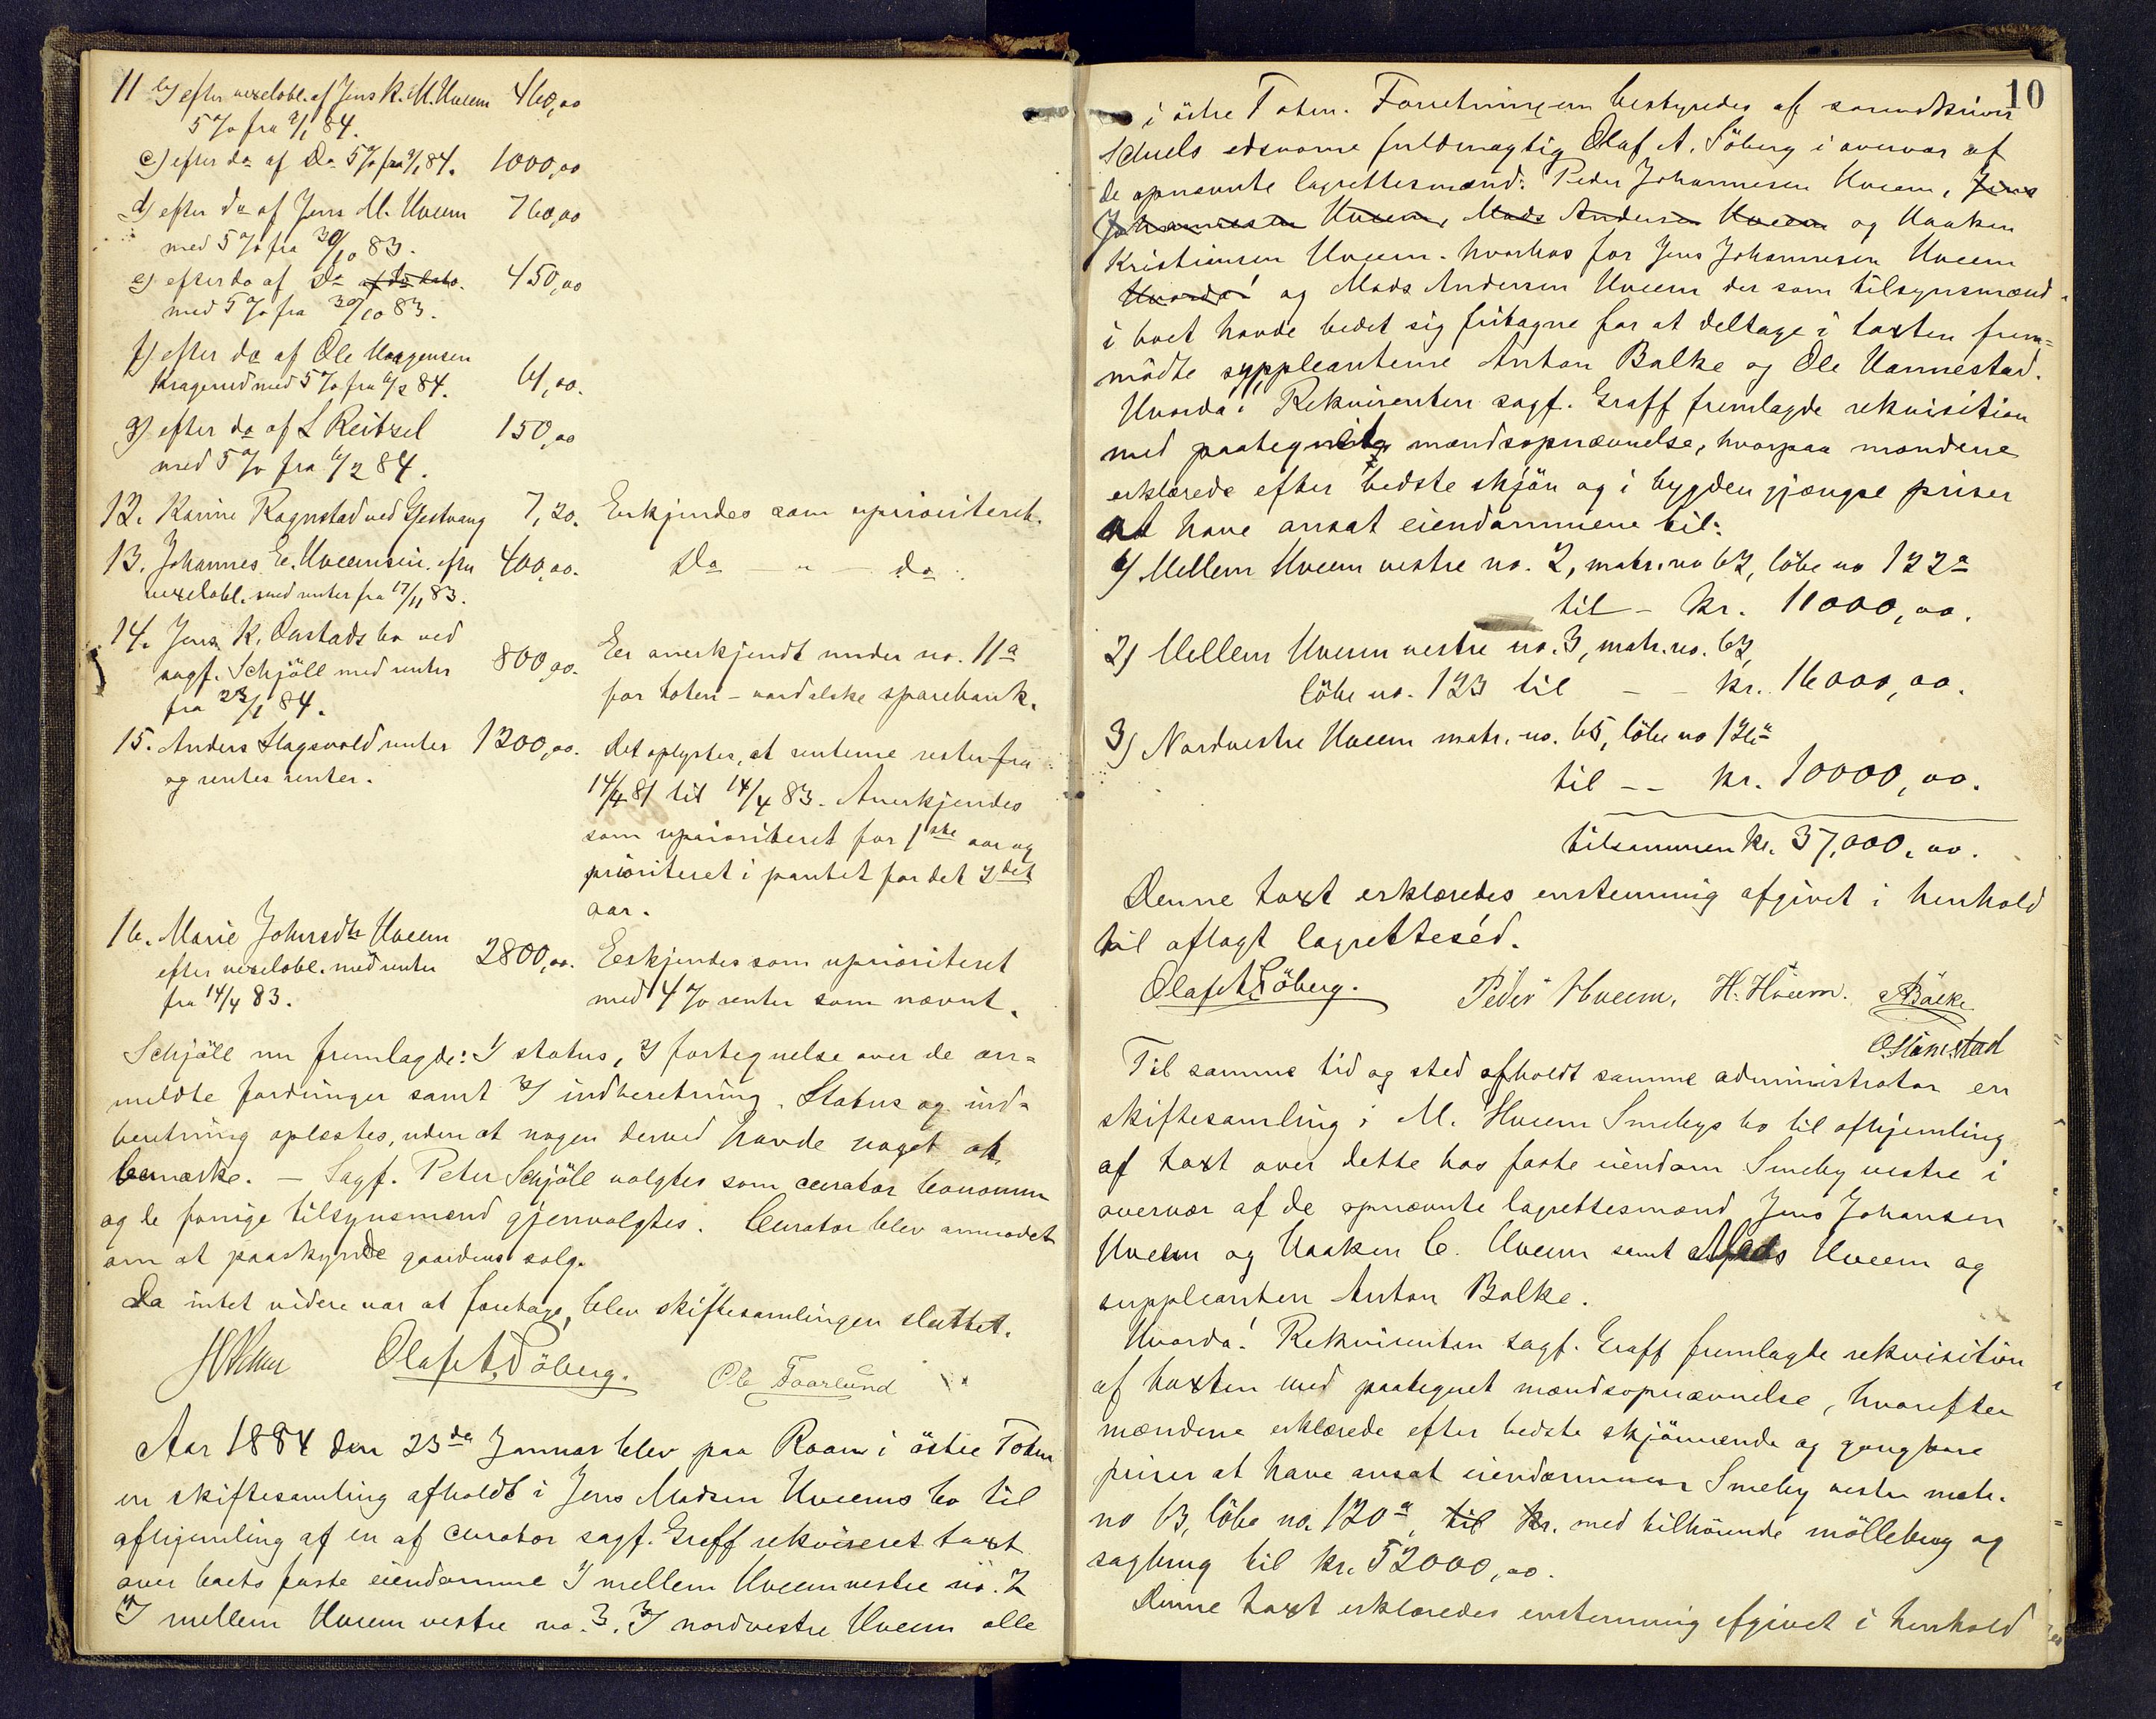 11 b) efter vexelobl. af Jens K. M. Hveem 460,00
5 % fra 2/1 84.
c) efter do af Do 5 % fra 2/1 84. 1000,00
d) efter do af Jens M. Hveem 760,00
med 5 % fra 30/10 83.
e) efter do af Do 450,00
med 5 % fra 30/10 83.
f) efter do af Ole Haagensen
Kragerud med 5 % fra 6/2 84. 61,00.
g) efter do af L Reitzel 150,00
med 5 % fra 6/2 84.
12. Karine Rognstad ved Gjestvang 7,20. Erkjendes som uprioriteret.
13. Johannes E. Hveemsein. efter 400,00. Do — " — do.
vexelobl. med renter fra 17/11 83.
14. Jens K. Onstads bo ved
sagf. Schjöll med renter 800,00. Er anerkjendt under no. 11a
fra 23/1 84. for toten-vardalske sparebank.
15. Anders Slagsvold renter 1200,00. Det oplystes, at renterne rester fra
og rentes renter. 14/4 81 til 14/4 83. Anerkjendes
som uprioriteret for 1ste aar og
prioriteret i pantet for det 2det
aar.
16. Marie Johnsdtr Hveem
efter vexelobl. med renter 2800,00. Erkjendes som uprioriteret
fra 14/4 83. med 4 % renter som nævnt.
Schjöll nu fremlagde: 1) status, 2) fortegnelse over de an-
meldte fordringer samt 3) indberetning. Status og ind-
beretning oplæstes, uden at nogen derved havde noget at
bemærke. — Sagf. Peter Schjöll valgtes som curator bonorum
og de forrige tilsynsmænd gjenvalgtes. Curator blev anmodet
om at paaskynde gaardens salg.
Da intet videre var at foretage, blev skiftesamlingen sluttet.
Olaf A. Söberg. Ole Faarlund
Aar 1884 den 23de Januar blev paa Raan i östre Toten
en skiftesamling afholdt i Jens Madsen Hveems bo til
afhjemling af en af curator sagf. Graff rekvireret taxt
over boets faste eiendomme 1) mellem Hveem vestre no. 2
2) mellem Hveem vestre no. 3. 3) nordvestre Hveem alle
10
i östre Toten. Forretningen bestyredes af sorenskriver
Schuels edsvorne fuldmægtig Olaf A. Söberg i overvær af
de opnævnte lagrettesmænd: Peder Johannesen Hveem, Jens
Johannesen Hveem, Mads Andersen Hveem og Haaken
Kristiansen Hveem. hvorhos for Jens Johannesen Hveem
Hvorda! og Mads Andersen Hveem der som tilsynsmænd
i boet havde bedet sig fritagne for at deltage i taxten frem-
mödte suppleanterne Anton Balke og Ole Hannestad.
Hvorda! Rekvirenten sagf. Graff fremlagde rekvisition
med paategnet mændsopnævnelse, hvorpaa mændene
erklærede efter bedste skjön og i bygden gjængse priser
at have ansat eiendommene til:
1) Mellem Hveem vestre no. 2, matr. no 62, löbe no 122a
til - kr. 11000,00.
2) Mellem Hveem vestre no. 3, matr. no. 62,
löbe no. 123 til - - kr. 16000,00.
3) Nordvestre Hveem matr. no. 65, löbe no 126a
til -- kr. 10000,00.
tilsammen kr. 37,000,00.
Denne taxt erklæredes enstemmig afgivet i henhold
til aflagt lagretteséd.
Olaf A. Söberg. Peder Hveem, H. Hveem. ABalke
Til samme tid og sted afholdt samme administrator en
skiftesamling i M. Hveem Smebys bo til afhjemling
af taxt over dette bos faste eiendom Smeby vestre i
overvær af de opnævnte lagrettesmænd Jens Johansen
Hveem og Haaken C. Hveem samt Mads Hveem og
suppleanten Anton Balke.
Hvorda! Rekvirenten sagf. Graff fremlagde rekvisition
af taxten med paategnet mændsopnævnelse, hvorefter
mændene erklærede efter bedste skjönnende og gangbare
priser at have ansat eiendommen Smeby vestre matr.
no 63, löbe no. 120a, til kr. med tilhörende möllebrug og
sagbrug til kr. 52000,00.
Denne taxt erklæredes enstemmig afgivet i henhold